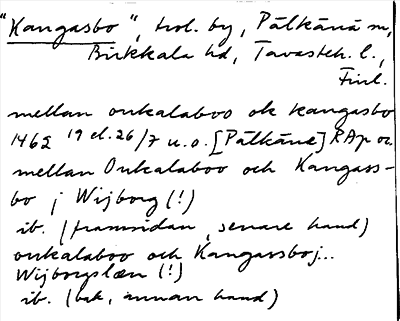 "Kangasbo", trol. by, Pälkänä sn,
Birkkala hd, Tavasteh. l.,
Finl.
mellan onkalaboo ok kangasbo
1462 19 el. 26/7 u.o. [Pälkäne] RAp or.
mellan Onkalaboo och Kangass-
bo j Wijborg (!)
ib. (framsidan, senare hand)
onkalaboo och Kangassboj..
Wijborgslæn (!)
ib. (bak, annan hand)